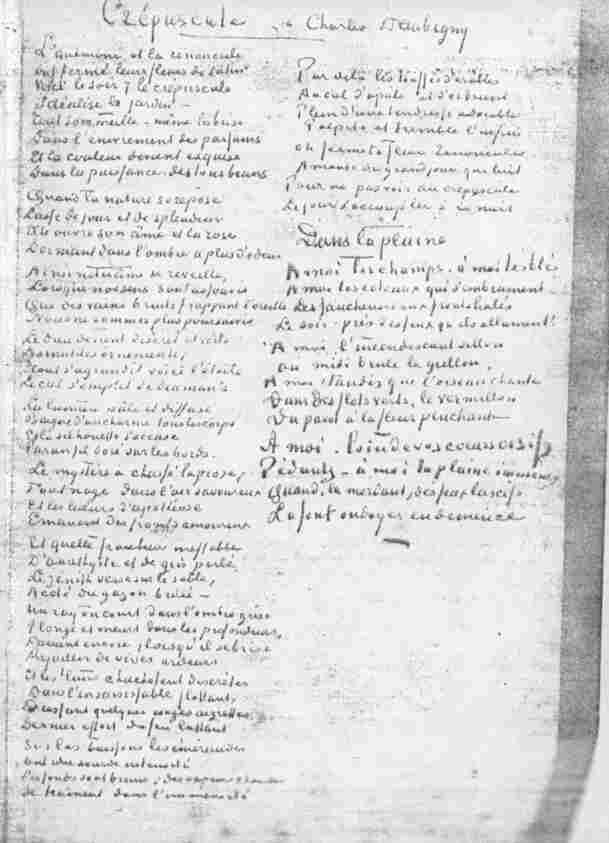 Crépuscule à Charles Daubigny
L'anémone et la renoncule
ont fermé leurs fleurs de satin
Voici le soir, et le crépuscule
Idéalise le jardin –
Tout sommeille – même la brise
Dans l'enivrement des parfums
Et la couleur devient exquise
Dans la puissance des tons bruns
Quand la nature se repose
Lasse de jour et de splendeur
Elle ouvre son âme et la rose
Dormant dans l'ombre a plus d'odeur
Ainsi notre âme se réveille,
Lorsque nos sens sont assouvis
Que des vains bruits frappant l'oreille
Nous ne sommes plus poursuivis
Le dieu devient discret et
Tout s'agrandit voici l'étoile
Le ciel s'emplit de diamants
La lumière pâle et diffuse
Baigne d'un charme tous les corps
Et la silhouette s'accuse
Par un fil doré sur les bords.
Le mystère a chassé la prose,
Tout nage dans l'air savoureux
Et les lueurs d'apothéose
Émanent des fronts amoureux
Et quelle fraîcheur ineffable
D'améthyste et de gris perlé
Le zénith verse sur le sable,
À côté du gazon brûlé –
Un rayon court dans l'ombre grise
Plonge et meurt dans les profondeurs,
Avant encore, lorsqu'il se brise
de vives ardeurs
chuchotent discrètes
Dans l'insaisissable flottant,
quelques rouges aigrettes
Dernier effort du feu luttant
Sur les buissons les émeraudes
Ont une sourde intensité
Les fonds sont bruns, des vapeurs chaudes
Se traînent dans l'immensité
Par delà les
Au ciel d'opale et
Plein d'une tendresse adorable
Palpite et tremble l'infini
On ferme ta fleur renoncule
Amante du grand jour qui luit
Pour ne pas voir au crépuscule
Le jour s'accoupler à la nuit
Dans la plaine
A moi les champs, à moi les blés
A moi les coteaux qui s'embrument
Les faucheuses aux fronts hâlés
Le soir, près des feux qui s'allument!
A moi, l'incandescent sillon
où midi brûle le grillon,
A moi tandis que l'oiseau chante
Dans des flots verts, le vermillon
Du pavot à la fleur penchante
A moi. Loin de vos cours oisifs
Pédants – à moi la plaine immense,
Quand, le mordant, des feux lascifs
La font ondoyer en démence